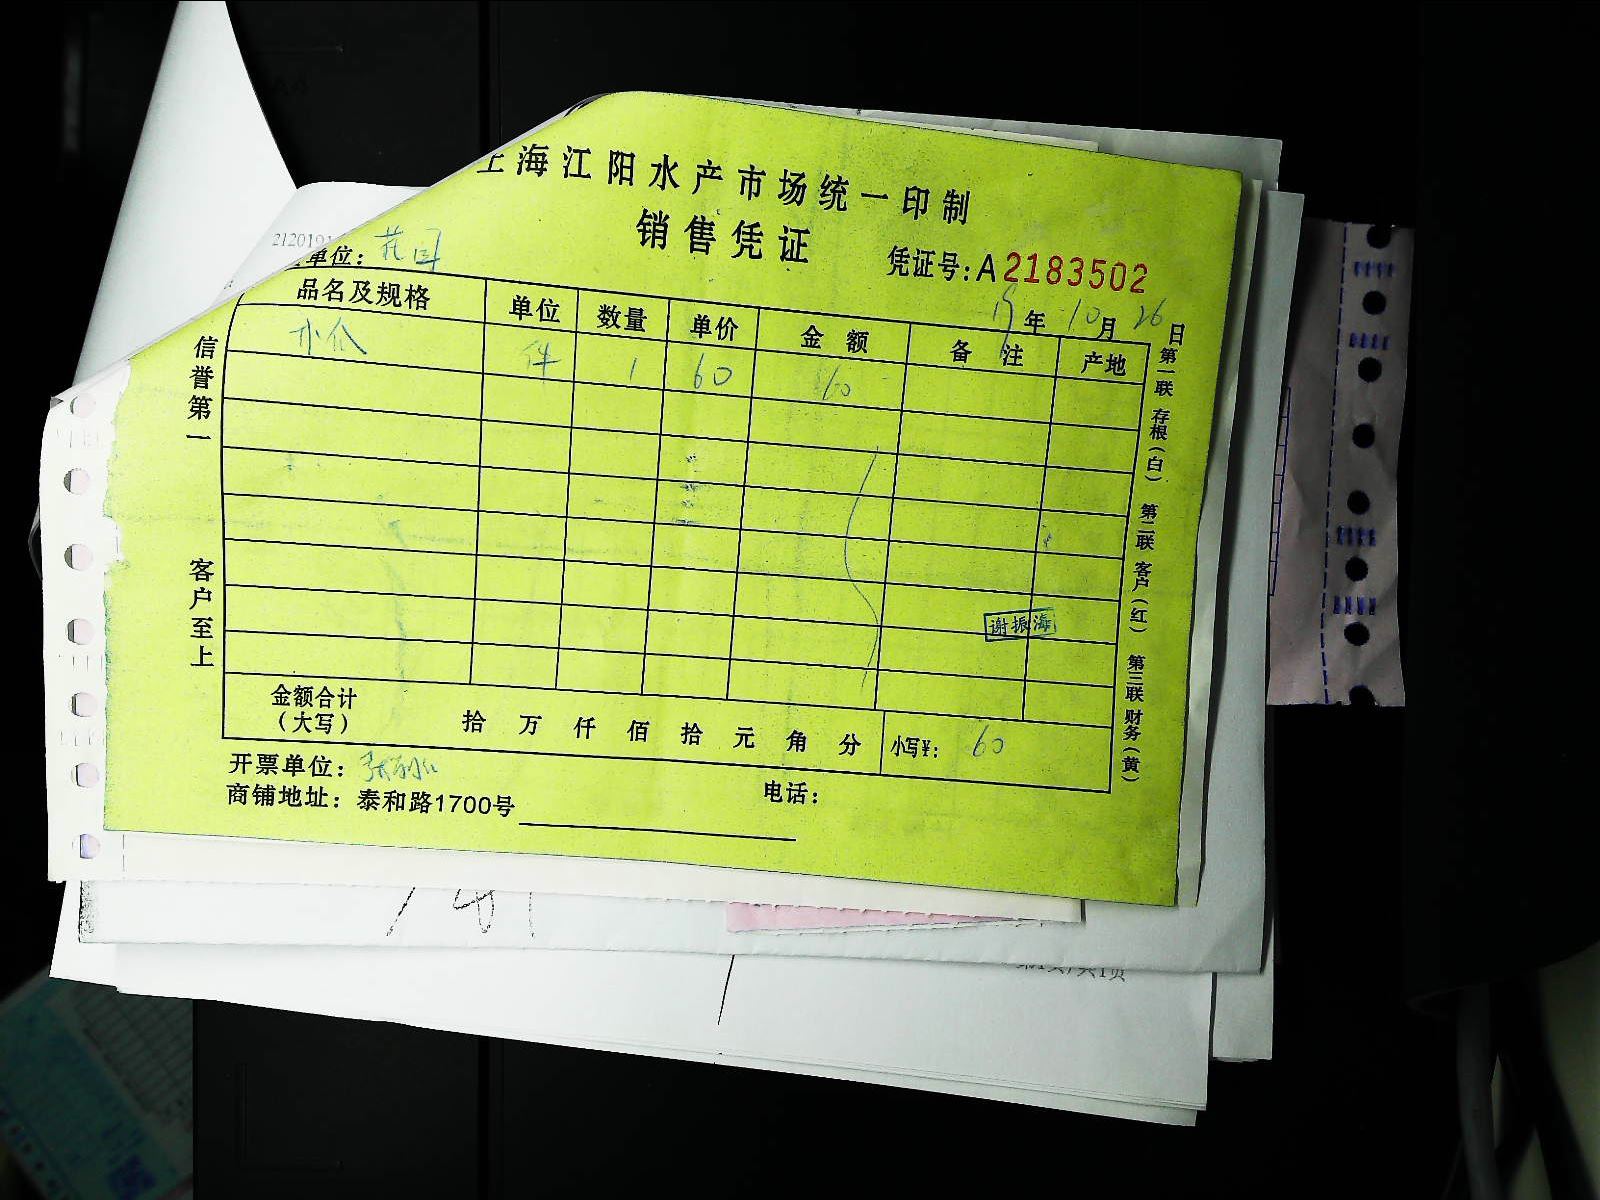 上海江阳水产市场统一印制
销售凭证
凭证号:A2183502
2120191
单位: 花园
年 10月 26日
品名及规格 单位 数量 单价 金额 备注 产地
件 1 60 60
信誉第一
客户至上
第一联 存根(白) 第二联 客户(红) 第三联 财务(黄)
谢振海
金额合计
(大写) 拾 万 仟 佰 拾 元 角 分 小写¥: 60
开票单位:
电话:
商铺地址: 泰和路1700号